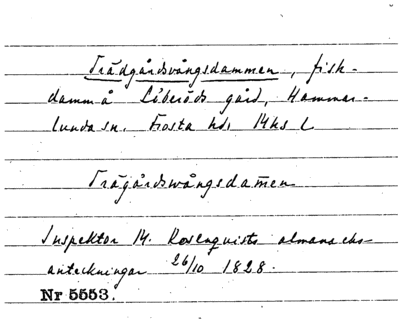 Trädgårdsvångsdammen, fisk-
damm å Löberöds gård, Hammar-
lunda sn. Frosta hd. Mhs L
Trägårdswångsdam̄en
Inspektor M. Rosenquists almanachs-
anteckningar 26/10 1828.
Nr 5553.